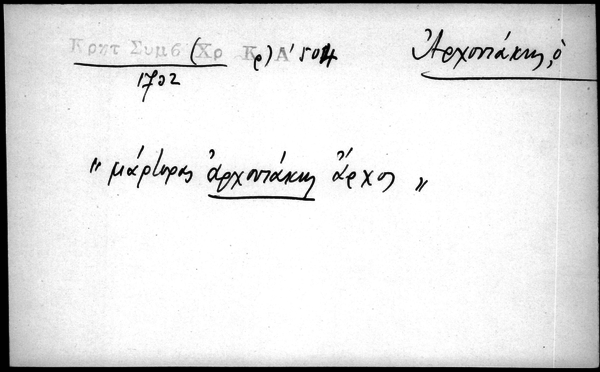 Κρητ Συμβ (Χρ Κρ) Α' 504 Ἀρχοντάκης, ὁ
1702
„ μάρτυρας ἀρχοντάκης ἄρχος „